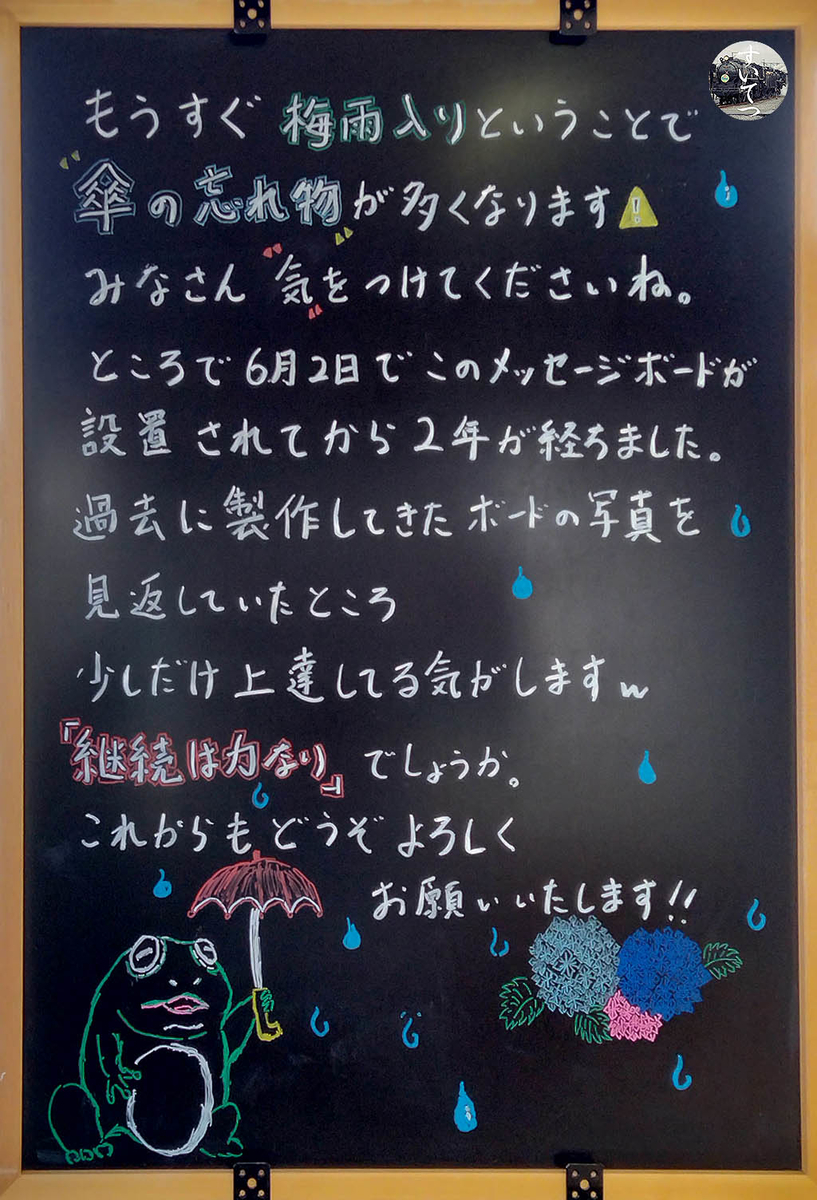 すいてつ
もうすぐ 梅雨入りということで
"傘の忘れ物"が多くなります!
みなさん "気"をつけてくださいね。
ところで 6月2日でこのメッセージボードが
設置されてから2年が経ちました。
過去に製作してきたボードの写真を
見返していたところ
少しだけ上達してる気がしますw
『継続は力なり』でしょうか。
これからもどうぞよろしく
お願いいたします!!